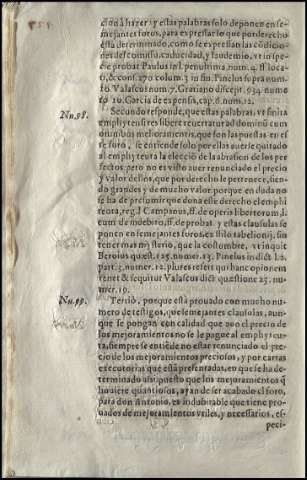 ción a hazer: y estas palabras solo deponen en se-
mejantes foros, para expressar lo que por derecho
está determinado, como se expressan las códicio-
nes de comisso, caducidad, y laudemio, vt in spe-
cie probat Paulus in l. penultima num. 4. ff. locat
i, & conf. 170. colum. 3. in fin. Pinelus supra nu-
to. Valascus num. 7. Gratiano discept. 934. numo
ro 20. Garcia de expensa, cap. 6. num. 12.
Nu. 98.
Secundo responde, que estas palabras, vt finita
emphyteusi res libere reuertatur ad dominū cum
omnibus melioramentis, que son las puestas en es
se foro, se entiende solo por les auerse quitado
al emphyteuta la elecció de la abrasion de los per
fectos pero no es visto auer renunciado el precio
y valor dellos, que por derecho le pertenece, sien
do grandes y de mucho valor porque en duda no
se ha de presumir que dona este derecho el emphi
teuta, reg. l Campanus, ff. de operis libertorum l.
cum de indebito, ff. de probat. y estas clausulas se
ponen en semejantes foros ex stilo tabelionū, sin
tener mas misterio, que la costumbre, vt inquit
Beroius quæst. 125. numer. 13. Pinelus in dict. l. 2.
part. 3. numer. 12. plures refert qui hanc opionem
tenet & sequitur Valascus dict. quæstione 25. nu-
mer. 19.
Nu. 99.
Tertiò, porque está prouado con mucho nu-
mero de testigos, que semejantes clausulas, aun-
que se pongan con calidad que aun el precio de
los mejoramientos no se le pague al emphyteu-
ta, siempre se entiēde no estar renunciado el pre-
cio de los mejoramientos preciosos, y por cartas
executorias que está presentadas, en que se ha de
terminado assi puesto que los mejoramientos q̃
huuiere quantiosos, ayan de ser acabado el foro,
para don Antonio, es indubitable que tiene pro-
uados de mejoramientos vtiles, y necessarios, es-
peci-